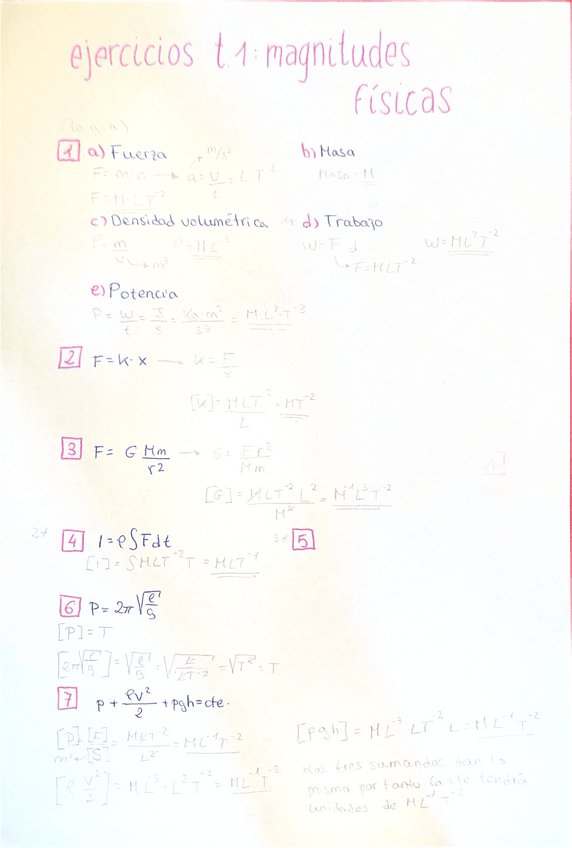 ejercicios t.1: magnitudes
físicas
1 a) Fuerza
m/s²
b) Masa
F = m·a → a = v/t = LT⁻²
Masa = M
F = M·LT⁻²
c) Densidad volumétrica
d) Trabajo
ρ = m/v → m³
ρ = ML⁻³
W = F·d
W = ML²T⁻²
F = MLT⁻²
e) Potencia
P = W/t = J/s = kg·m²/s³ = M·L²·T⁻³
2 F = K·x → K = F/x
[K] = MLT⁻²/L = MT⁻²
3 F = G Mm/r² → G = Fr²/Mm
[G] = MLT⁻²·L²/M² = M⁻¹L³T⁻²
4 I = ρ∫Fdt
5
[I] = ∫MLT⁻²T = MLT⁻¹
6 P = 2π√l/g
[P] = T
[2π√l/g] = √l/g = √L/LT⁻² = √T² = T
7 p + ρv²/2 + ρgh = cte.
[P] = [F]/[S] = MLT⁻²/L² = ML⁻¹T⁻²
m²←
[ρgh] = ML⁻³ LT⁻² L = ML⁻¹T⁻²
[ρ v²/2] = ML⁻³·L²T⁻² = ML⁻¹T⁻²
los tres sumandos dan lo
mismo por tanto la cte tendrá
unidades de ML⁻¹T⁻²